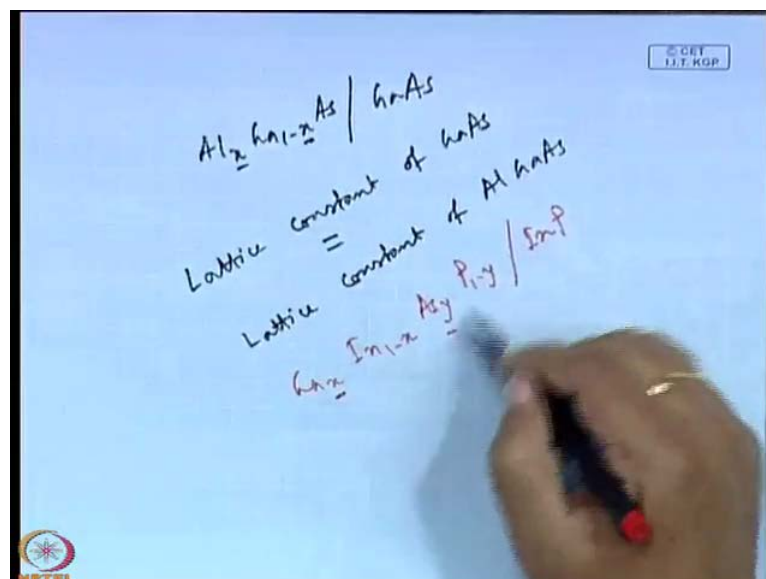 © CET
I.I.T. KGP
Alₓ Ga₁₋ₓ As | GaAs
Lattice constant of GaAs
=
Lattice constant of AlGaAs
Gaₓ In₁₋ₓ Asy P₁-y | InP
NPTEL